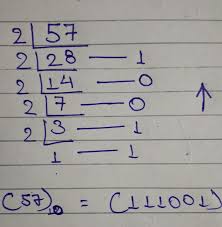 2 | 57
2 | 28 — 1
2 | 14 — 0
2 | 7 — 0
2 | 3 — 1
1 — 1
↑
(57)₁₀ = (111001)